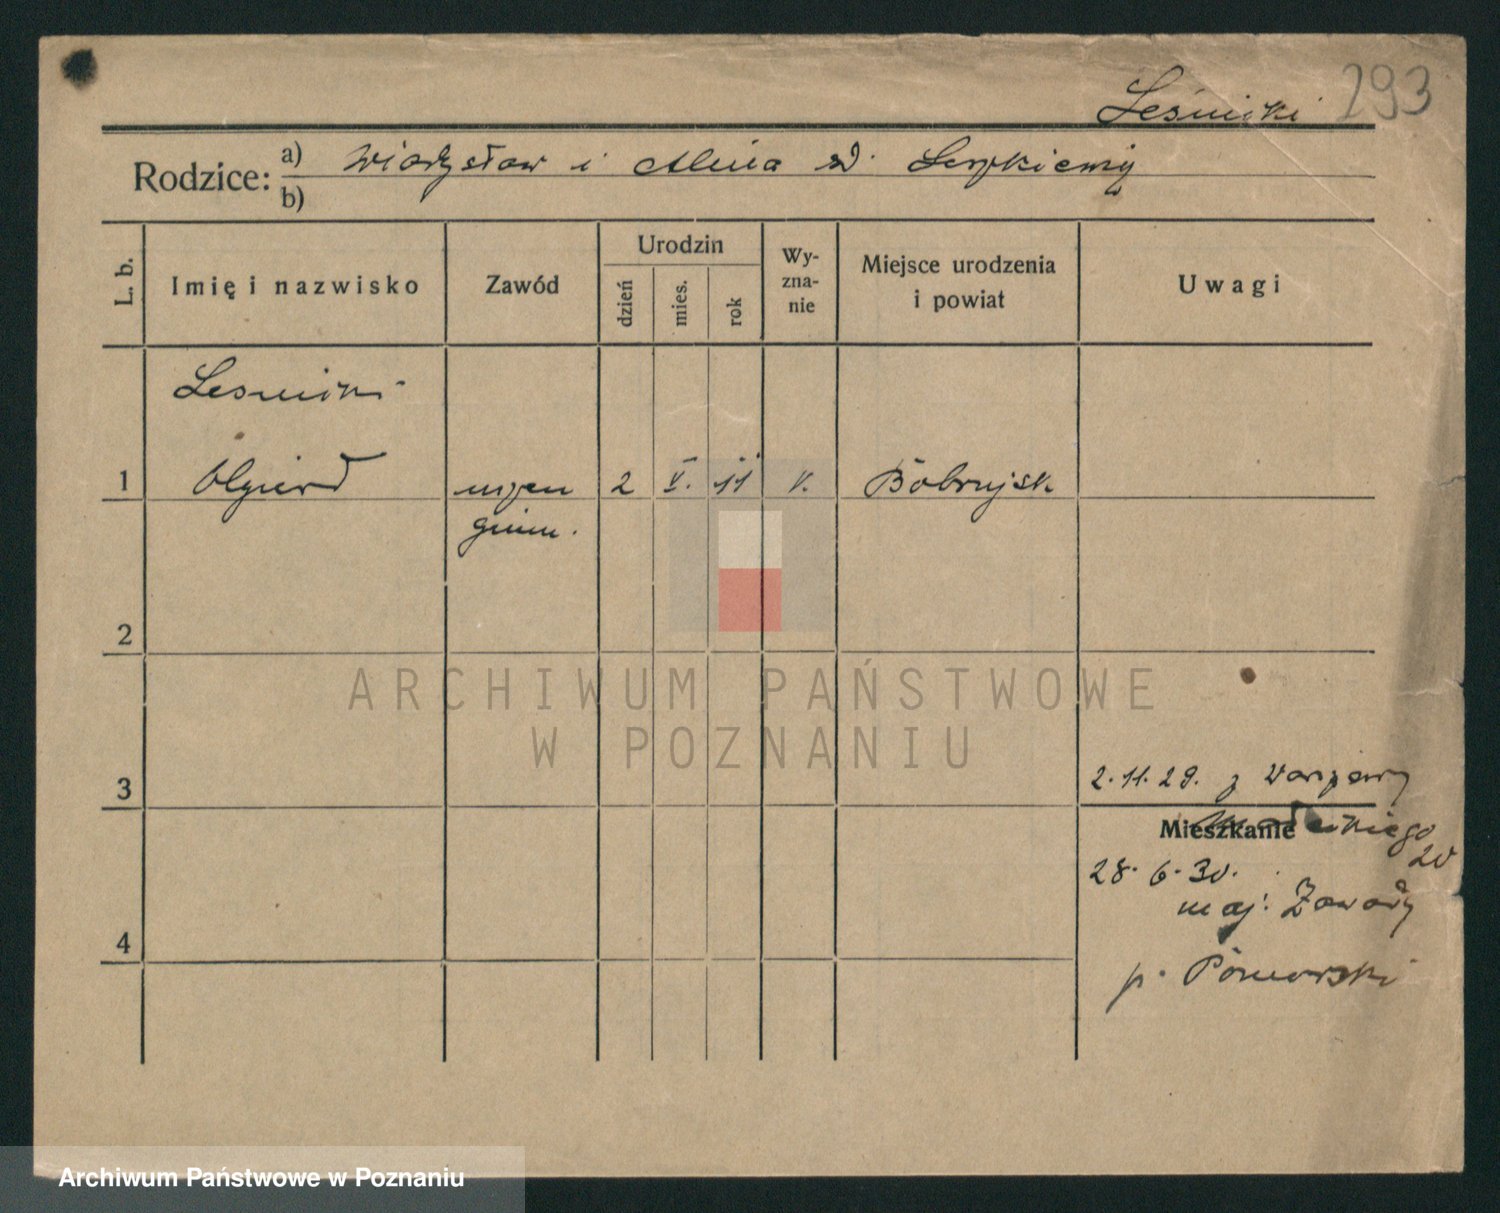 Leśnicki 293
Rodzice: a) Władysław i Alina
b)
L. b.
Imię i nazwisko
Zawód
Urodzin
dzień
mies.
rok
Wy-
zna-
nie
Miejsce urodzenia
i powiat
Uwagi
Leśnicki
1 Olgierd uczeń 2 V. 11 Bobrujsk
gimn.
2
3 2.11.29. z Warszawy
Mieszkanie
20
28.6.30.
maj. Zawady
4
p. Pomorski
ARCHIWUM PAŃSTWOWE
W POZNANIU
Archiwum Państwowe w Poznaniu